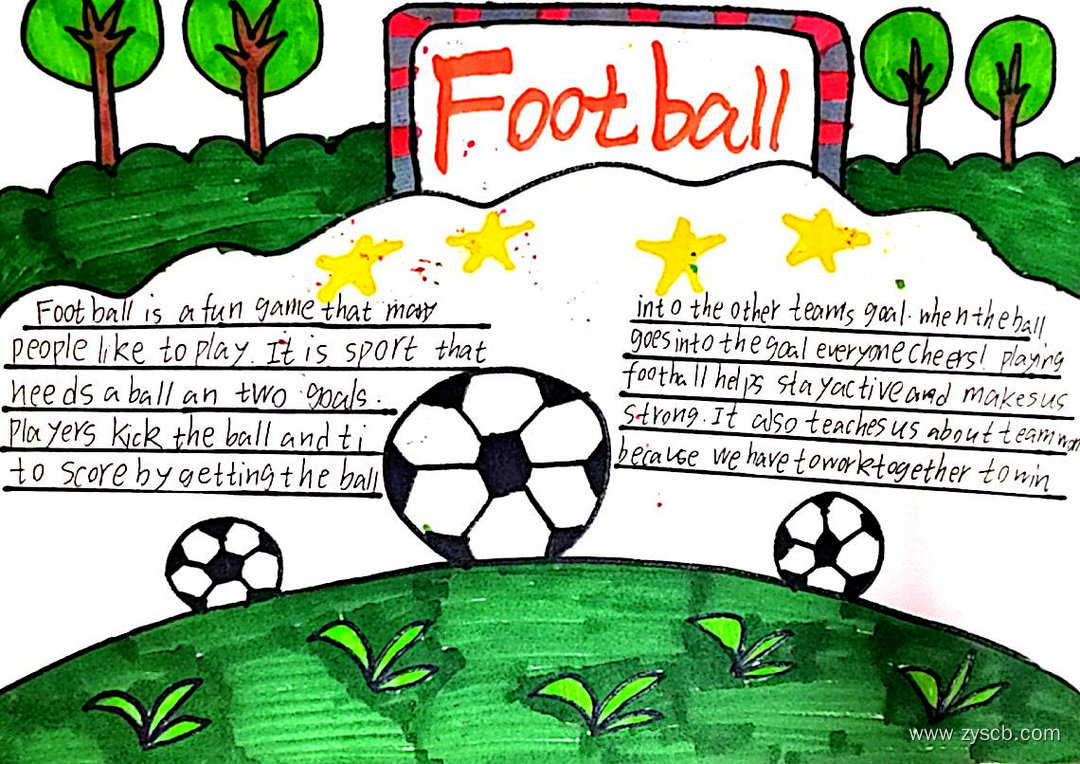 Football
Football is a fun game that many
people like to play. It is sport that
needs a ball an two goals.
Players kick the ball and ti
to score by getting the ball
into the other teams goal. when the ball
goes into the goal everyone cheers! playing
football helps stay active and makes us
strong. It also teaches us about team wor
because we have to work together to win
www.zyscb.com